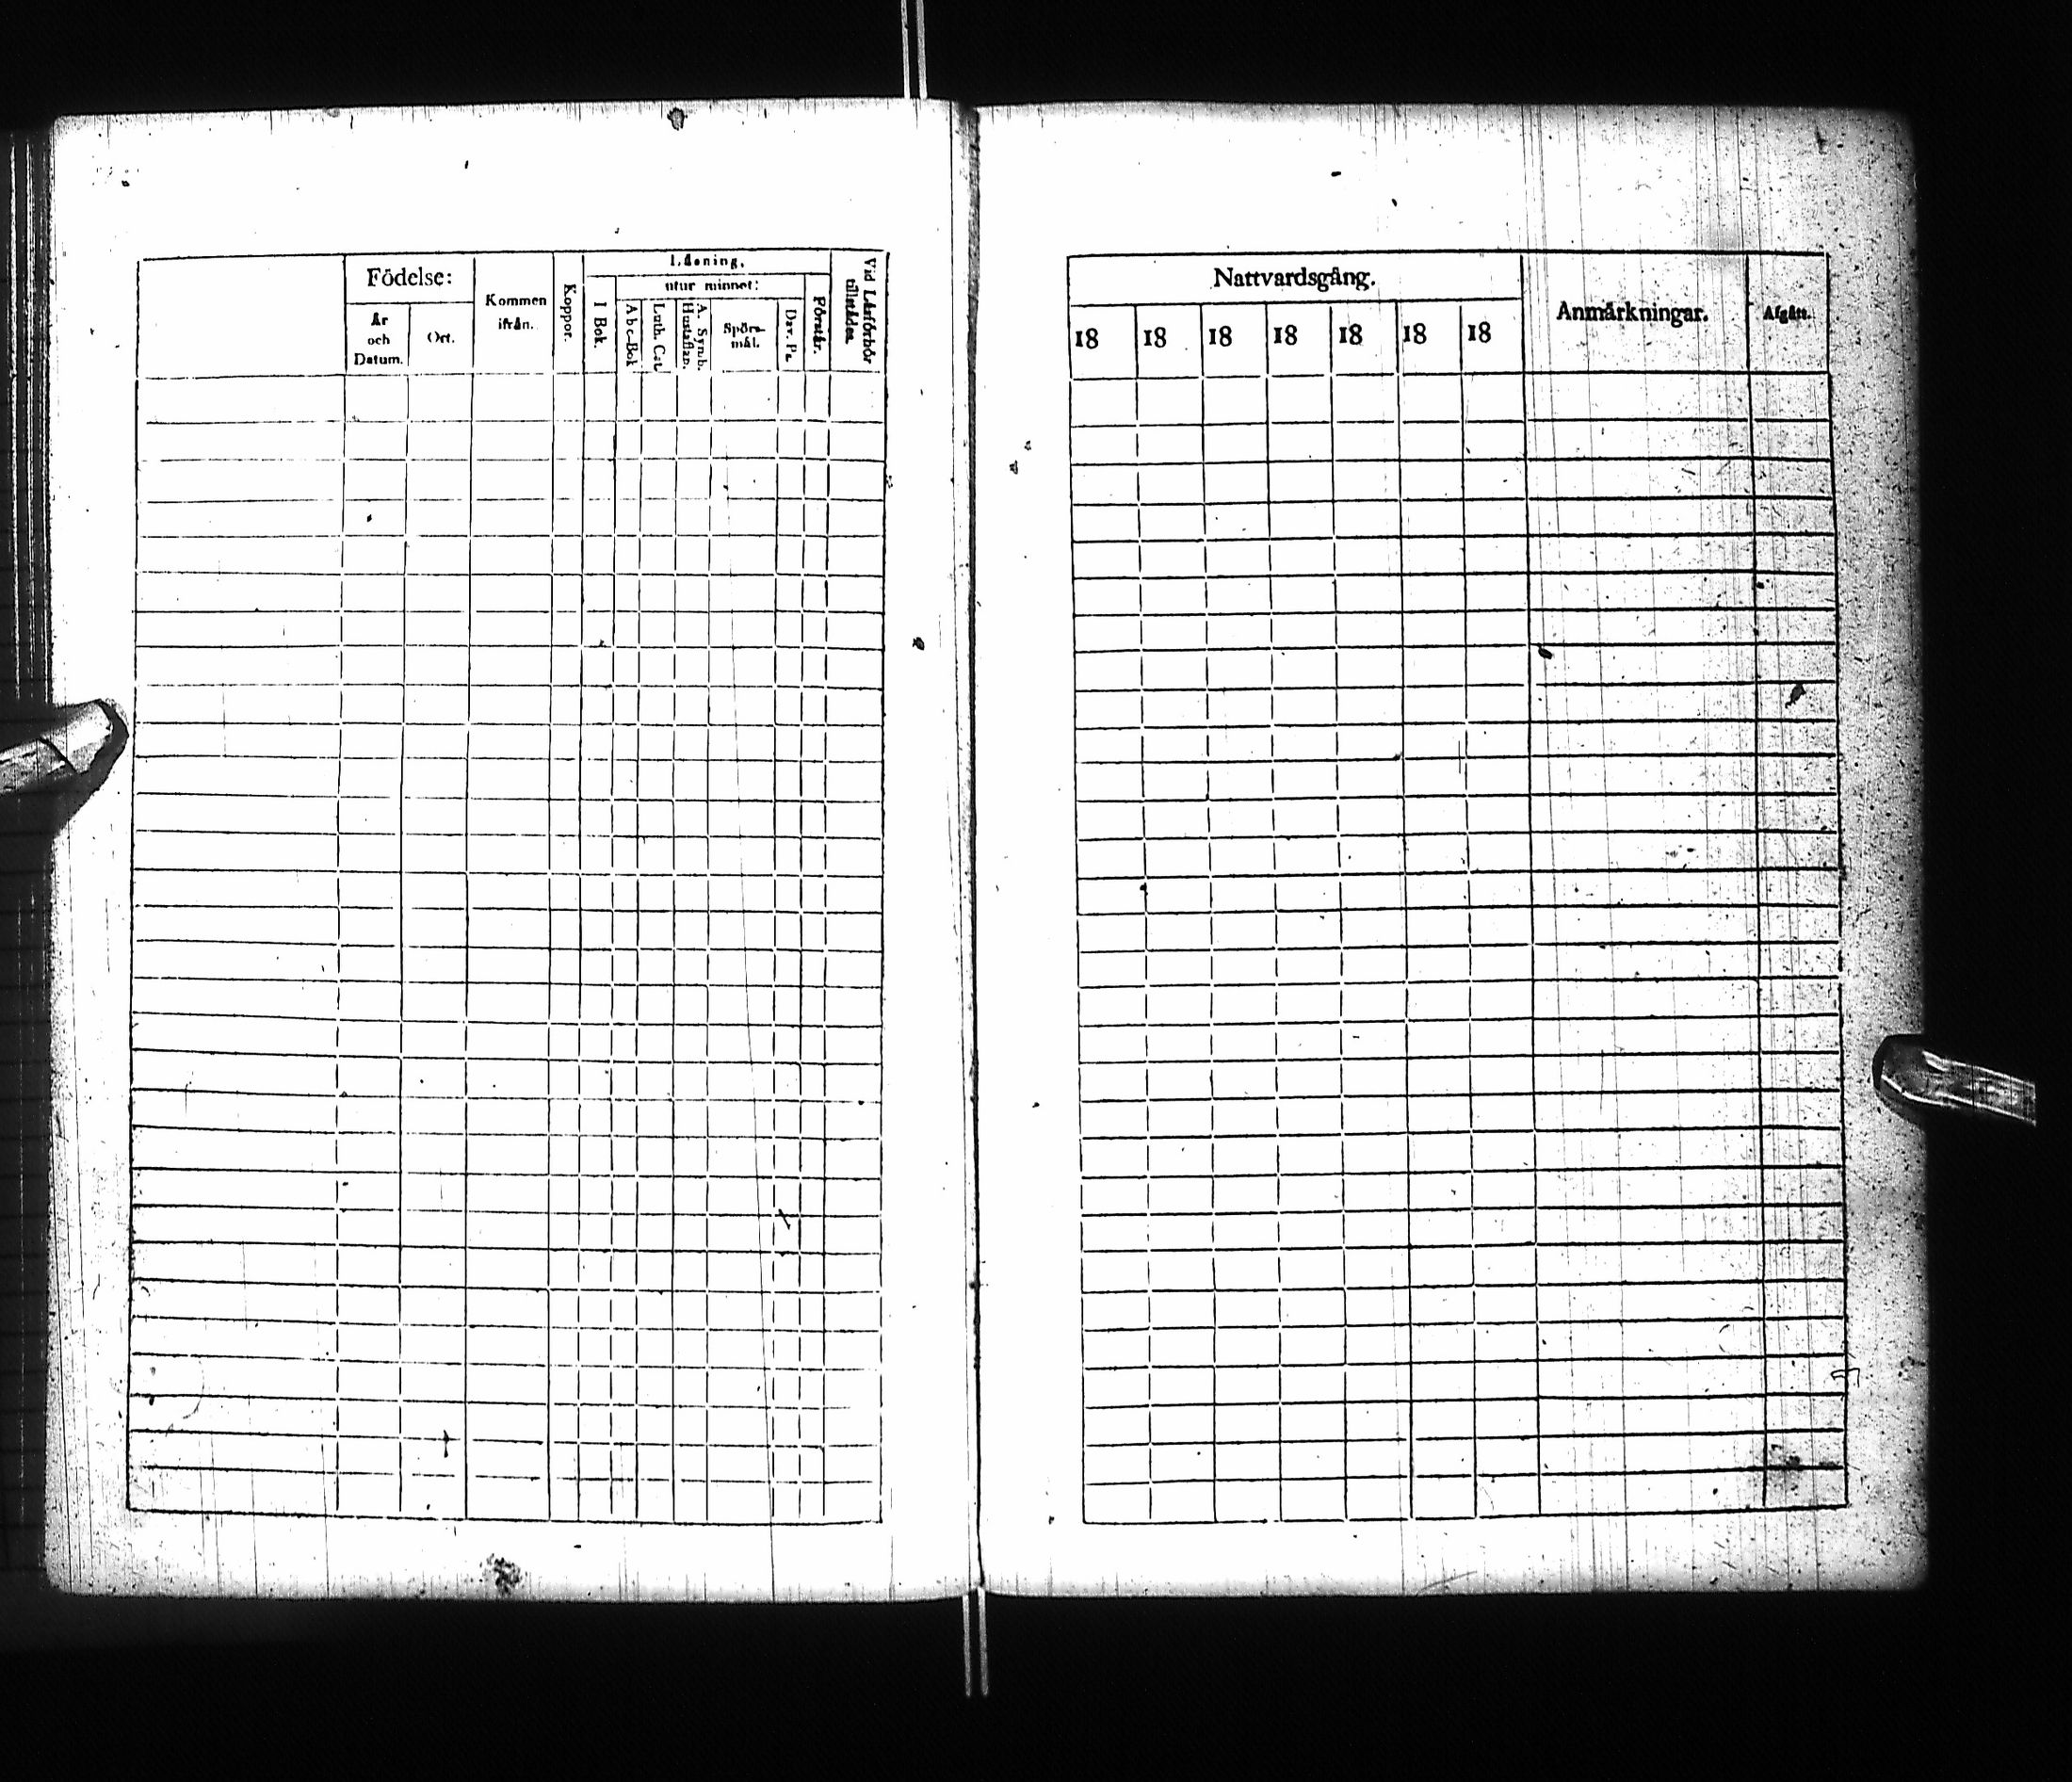 Födelse:
År
och
Datum.
Ort.
Kommen
ifrån.
Koppor.
Läsning.
utur minnet:
I Bok.
Abc-Bok
Luth. Cat.
A. Symb.
Hustaflan.
Spörs-
mål.
Dav. Ps.
Förstår.
Vid Läsförhör
tillstädes.
Nattvardsgång.
18 18 18 18 18 18 18
Anmärkningar.
Afgått.